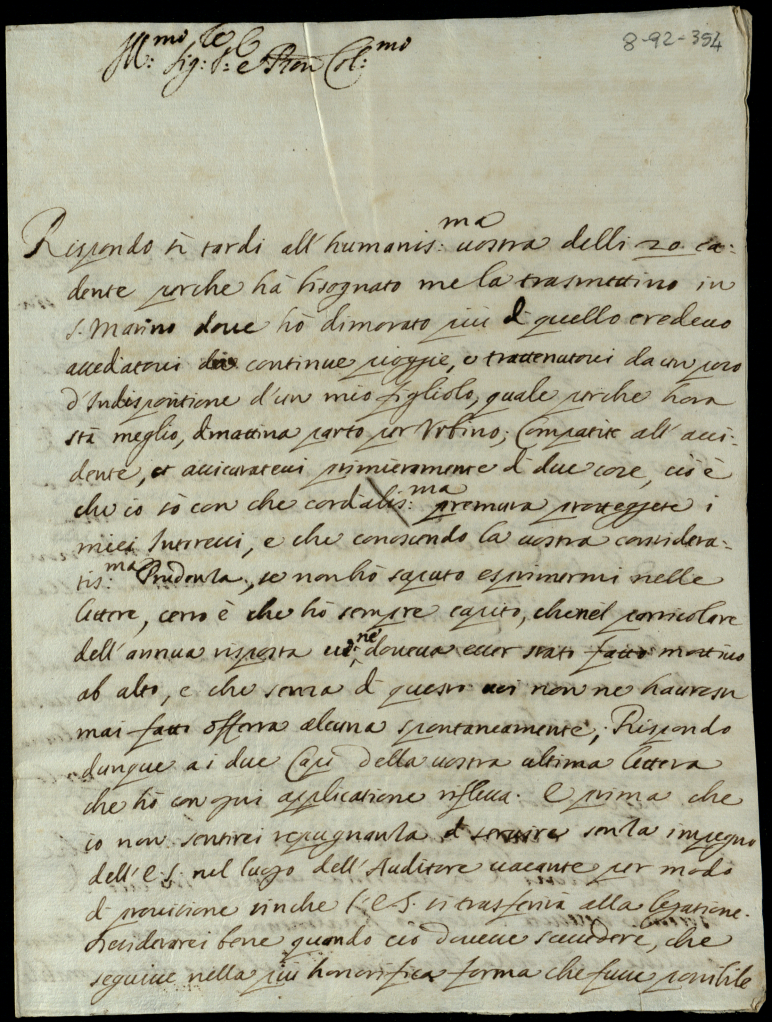 8-92-354
Ill:mo Sig:r e Pron Col:mo
Rispondo sì tardi all'humanis:ma vostra delli 20. ca:
dente perche hà bisognato me la trasmettino in
S. Marino dove hò dimorato più di quello credevo
assediatovi da continue pioggie, e trattenutovi da un poco
d'Indispositione d'un mio figliolo, quale perche hora
stà meglio, dimattina parto per Urbino; Compatite all'acci:
dente, et assicuratevi primieramente di due cose, ciò è
che io sò con che cordialis:ma premura proteggete i
miei Interessi, e che conoscendo la vostra considera-
tis:ma Prudenza, se non hò saputo esprimermi nelle
lettere, certo è che hò sempre capito, che nel particolare
dell'annua risposta doveva esser stato motivo
ab alto, e che senza di questo voi non ne havresti
mai fatto offerta alcuna spontaneamente; Rispondo
dunque a i due Capi della vostra ultima lettera
che hò con ogni applicatione riflessa. E prima che
io non sentirei repugnanza di servire senza impegno
dell'E.S. nel luogo dell'Auditore vacante per modo
di provisione sinche l'E.S. si trasferirà alla Legatione.
Desiderarei bene quando ciò dovesse succedere, che
seguisse nella più honorifica forma che fusse possibile